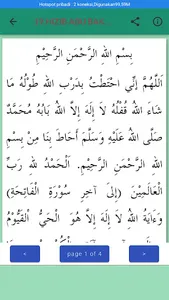 Hotspot pribadi : 2 koneksi,Digunakan99.99M
بِسْمِ اللهِ الرَّحْمَنِ الرَّحِيْمِ
اَللَّهُمَّ إِنِّي احْتَطْتُ بِدَرْبِ اللهِ طُوْلُهُ مَا
شَاءَ اللهُ قُفْلُهُ لَا إِلَهَ إِلَّا اللهُ بَابُهُ مُحَمَّدٌ
صَلَّى اللهُ عَلَيْهِ وَسَلَّمَ أَحَاطَ بِنَا مِنْ بِسْمِ
اللهِ الرَّحْمَنِ الرَّحِيْمِ. اَلْحَمْدُ للهِ رَبِّ
الْعَالَمِيْنَ (إِلَى آخِرِ سُوْرَةِ الْفَاتِحَةِ)
وَءَايَةُ اللهُ لَا إِلَهَ إِلَّا هُوَ الْحَيُّ الْقَيُّوْمُ
< page 1 of 4 >